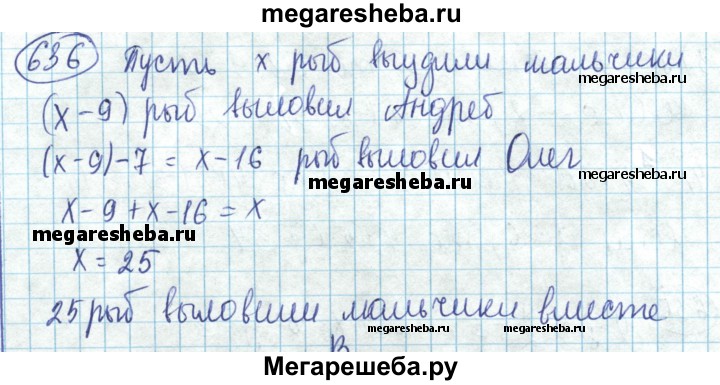 megaresheba.ru
636 Пусть x рыб выудили мальчики
megaresheba.ru
(x-9) рыб выловил Андрей
(x-9)-7 = x-16 рыб выловил Олег
megaresheba.ru
megaresheba.ru
x-9+x-16=x
megaresheba.ru
x=25
megaresheba.ru
25 рыб выловили мальчики вместе
megaresheba.ru
Мегарешеба.ру